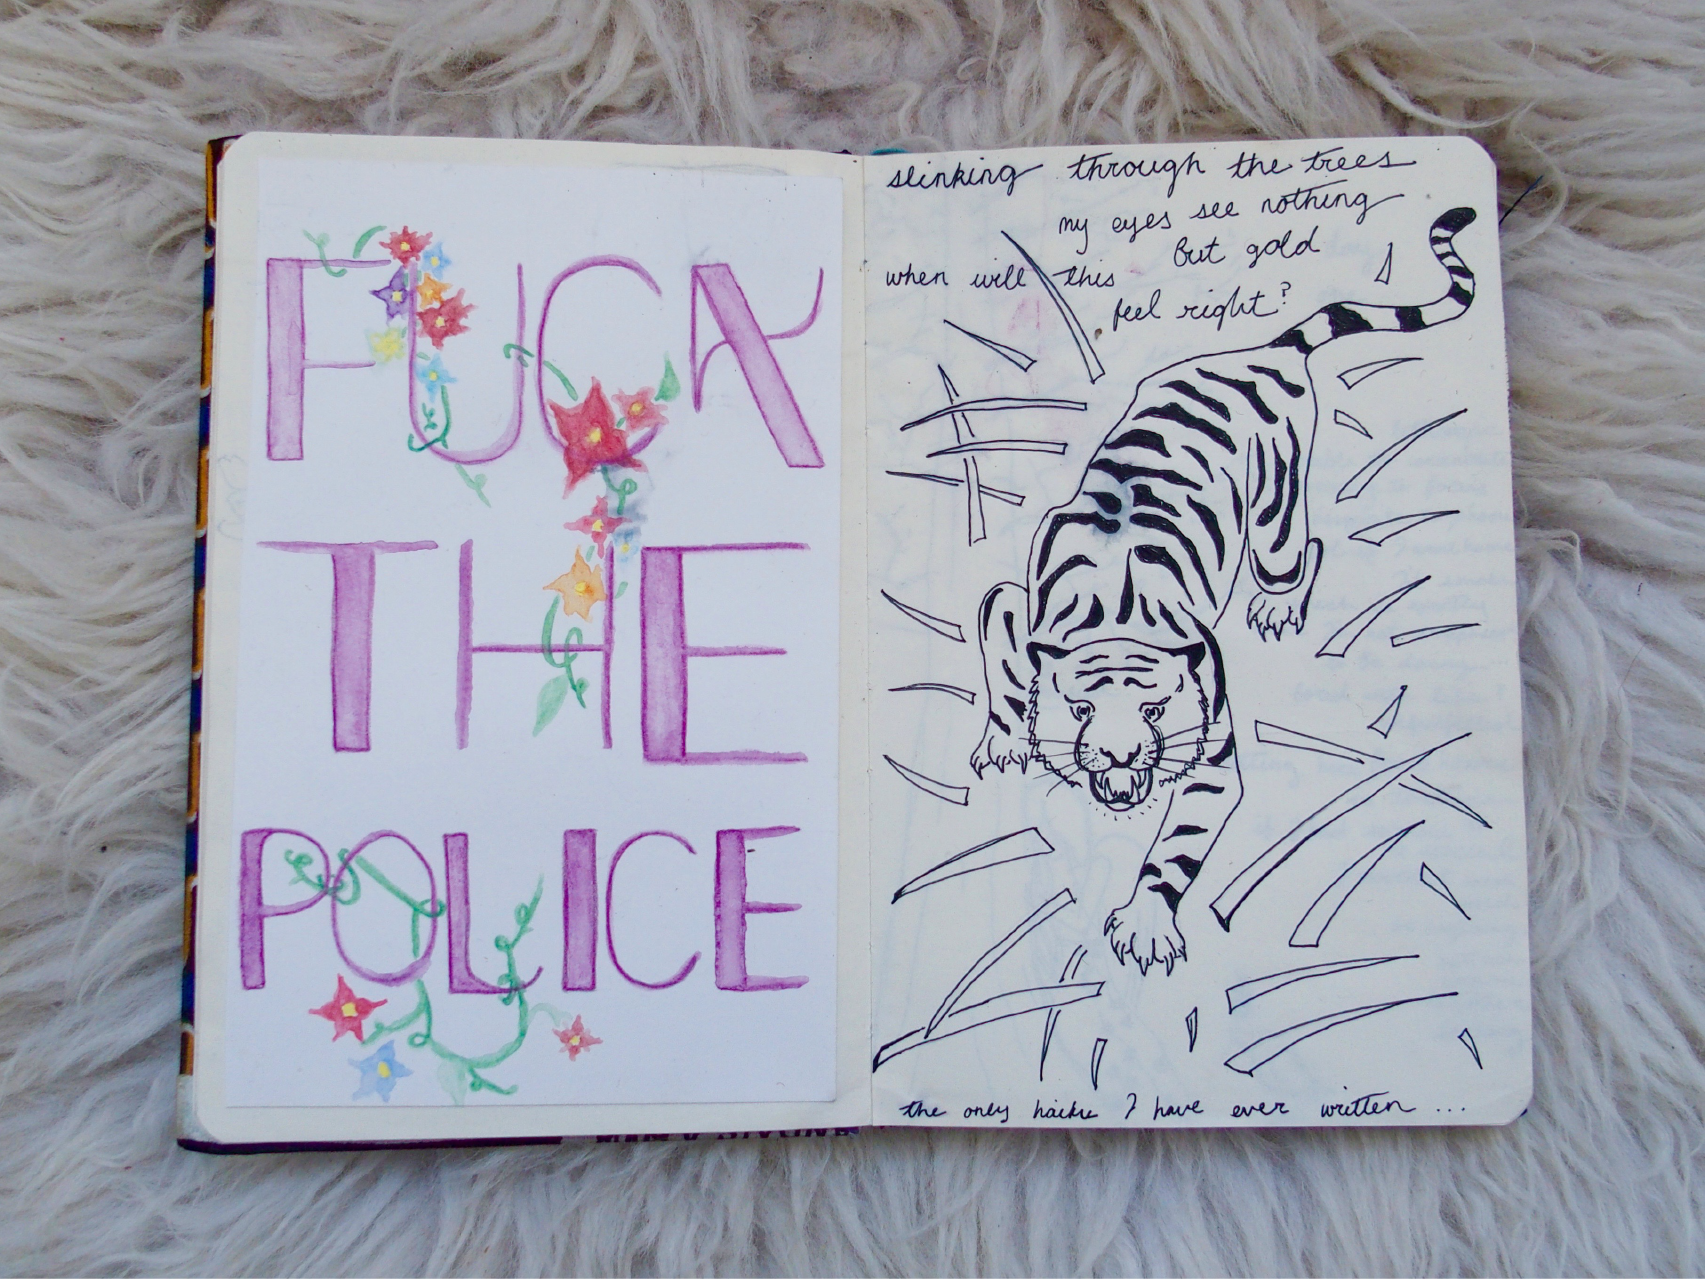 FUCK
THE
POLICE
slinking through the trees
my eyes see nothing
but gold
when will this
feel right?
the only haiku I have ever written ...